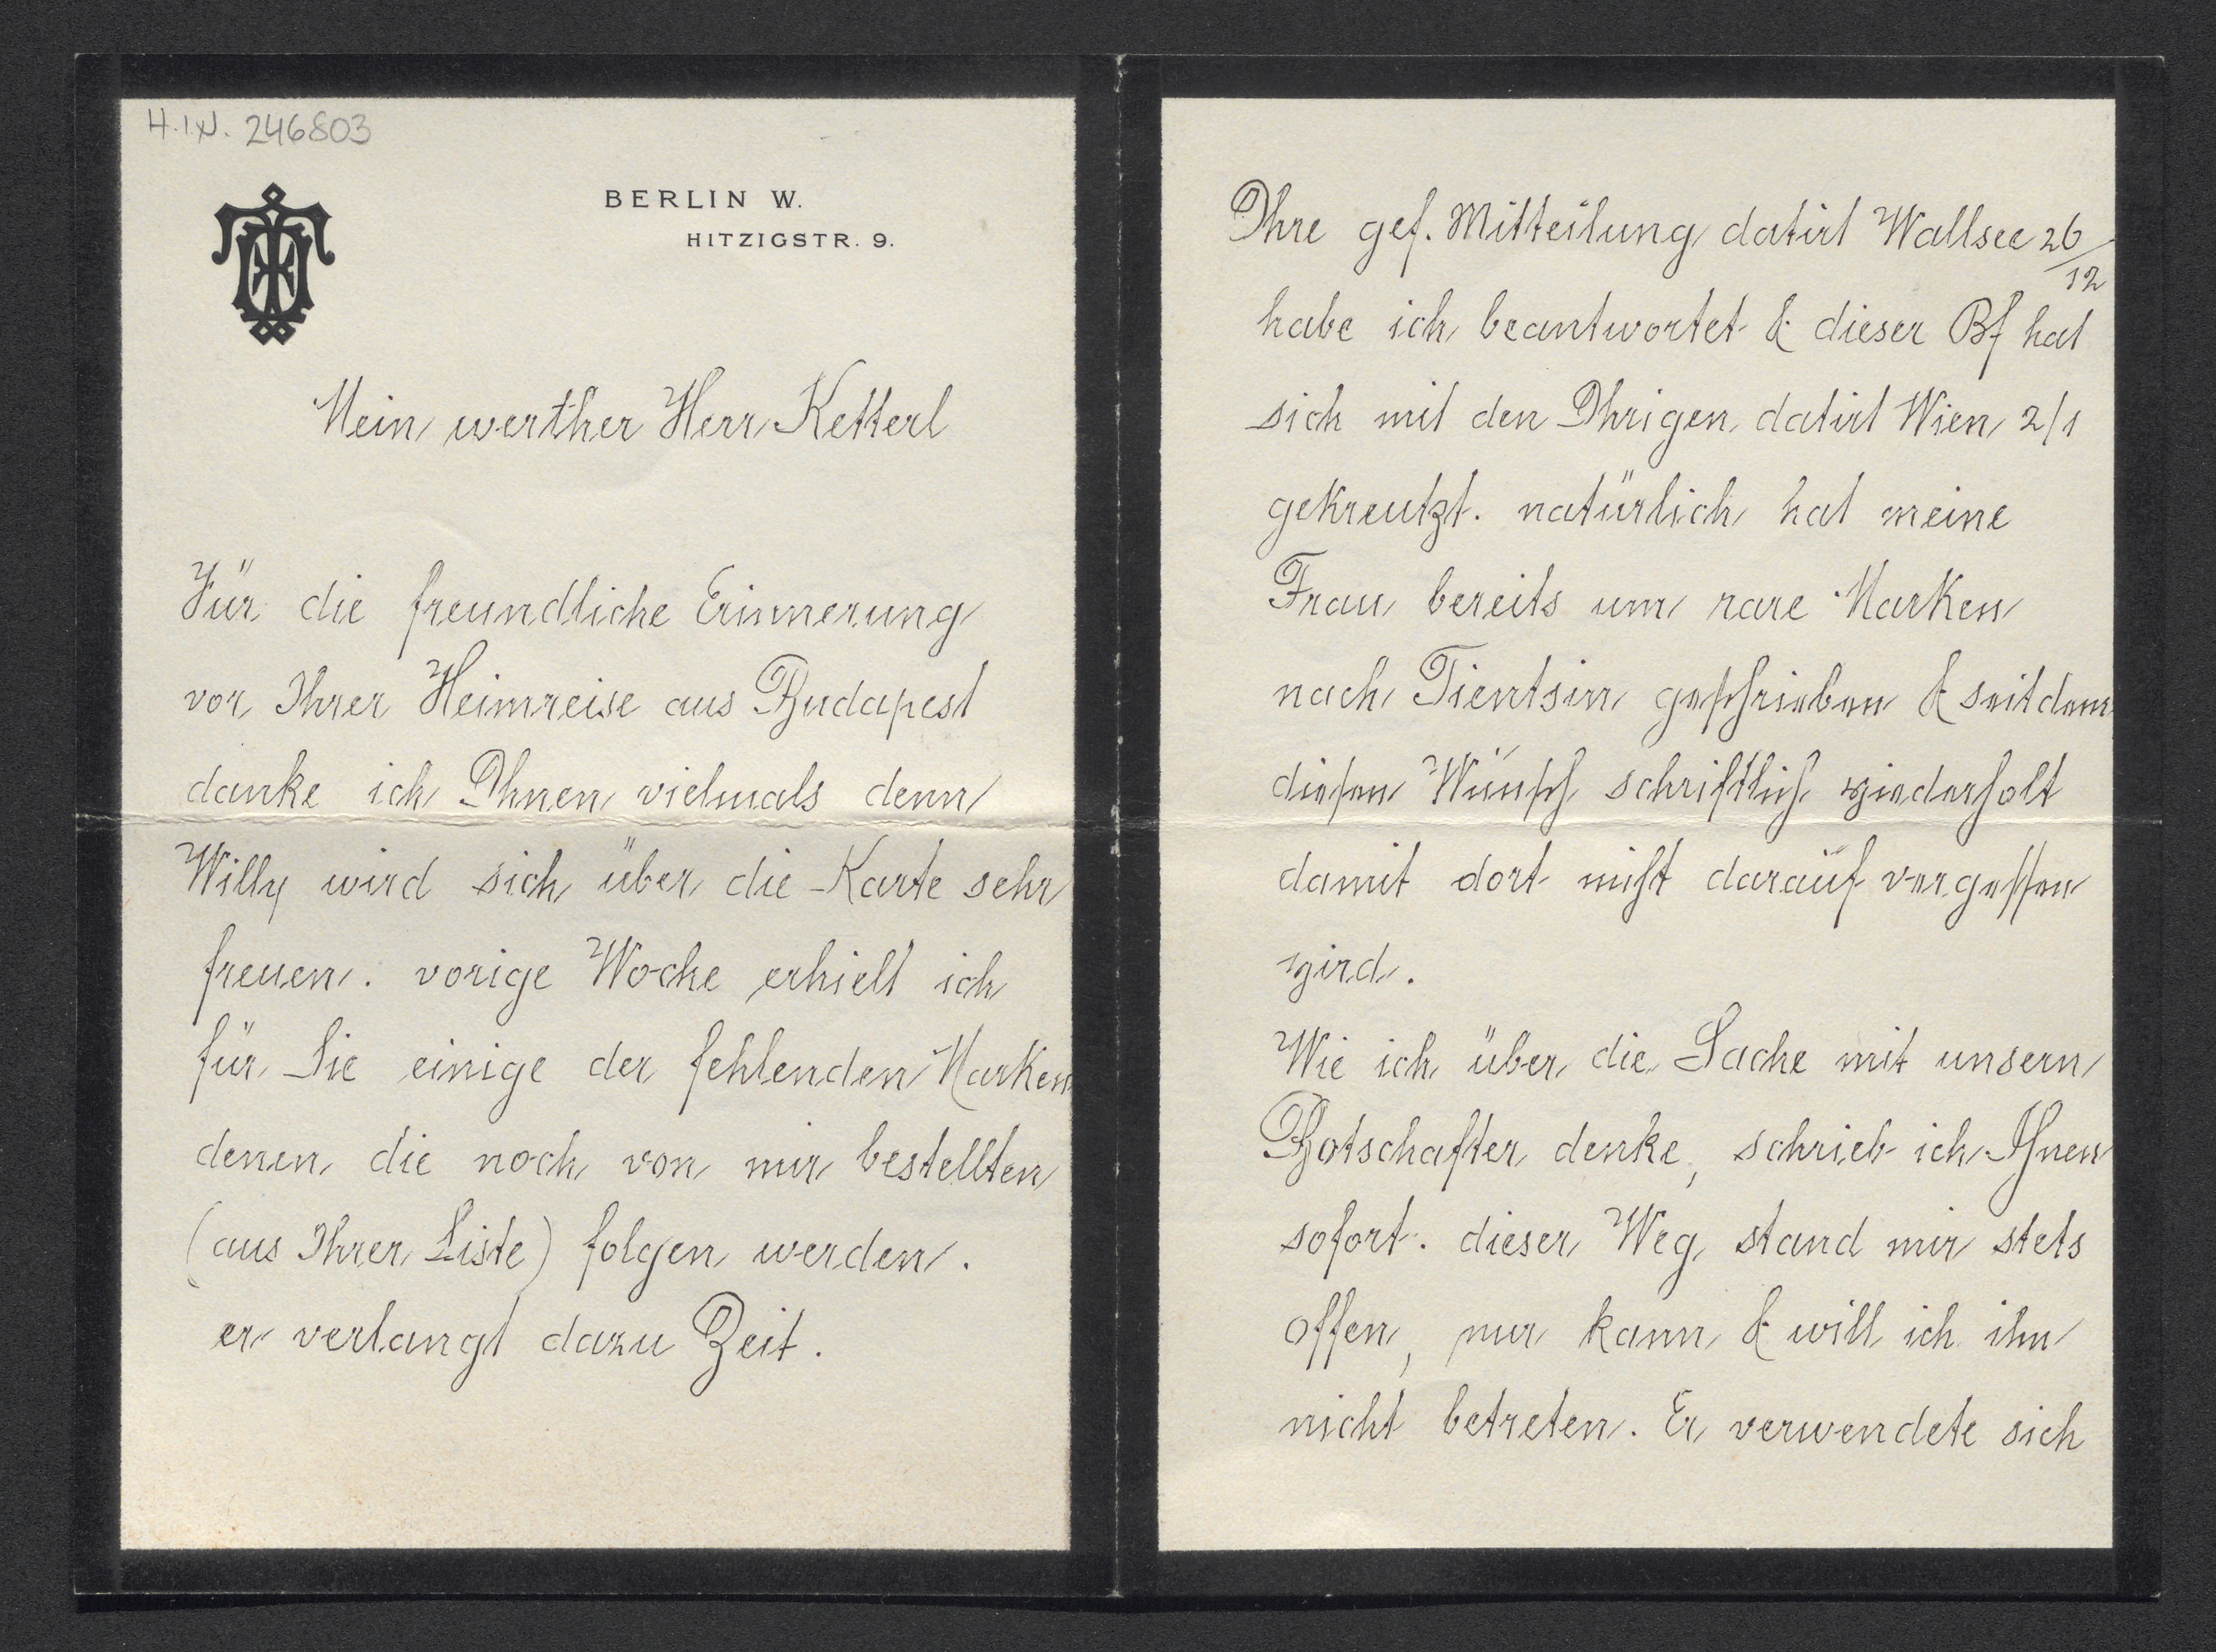 H.I.N. 246803
BERLIN W.
HITZIGSTR. 9.
Mein werther Herr Ketterl
Für die freundliche Erinnerung
vor Ihrer Heimreise aus Budapest
danke ich Ihnen vielmals denn
Willy wird sich über die Karte sehr
freuen. vorige Woche erhielt ich
für Sie einige der fehlenden Marken
denen die noch von mir bestellten
(aus Ihrer Liste) folgen werden.
er verlangt dazu Zeit.
Ihre gef. Mitteilung datirt Wallsee 26/12
habe ich beantwortet & dieser Bf hat
sich mit den Ihrigen datirt Wien 2/1
gekreutzt. natürlich hat meine
Frau bereits um rare Marken
nach Tientsin geschrieben & seitdem
diesen Wunsch schriftlich wiederholt
damit dort nicht darauf vergessen
wird.
Wie ich über die Sache mit unsern
Botschafter denke, schrieb ich Ihnen
sofort. dieser Weg stand mir stets
offen, nur kann & will ich ihn
nicht betreten. Er verwendete sich